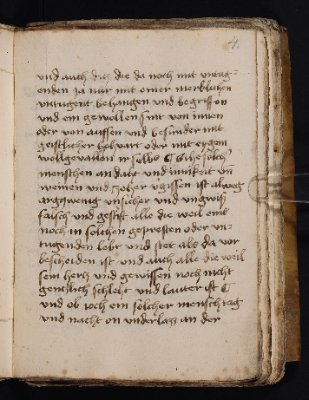 4.
und auch die die da noch mit untug-
enden Ja nur mit einer mercklichen
untugent behangen und begriffen
und ein gewollen sint von innen
oder von aussen und besunder mit
geistlicher hohvart oder mit eygem
wollgevallen ir selbs solch
menschen andaht und innikeit
weinen und ist alweg
argwenig unsicher und ungewiß
falsch und alle die weil
noch in solchen gepresten oder un-
tugenden lebt und stet als da vor
bescheiden ist und auch alle die weil
sein hertz und gewissen noch nicht
gentzlich schleht und lauter ist
und ob ioch ein solcher mensch tag
und nacht on underlass an der